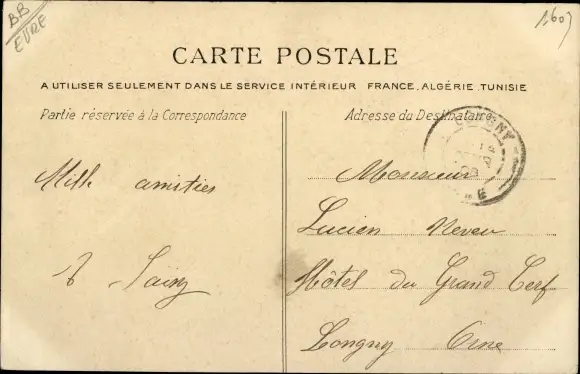 BB
EURE
1607
CARTE POSTALE
A UTILISER SEULEMENT DANS LE SERVICE INTÉRIEUR FRANCE, ALGÉRIE, TUNISIE
Partie réservée à la Correspondance
Adresse du Destinataire
Mille amitiés
Monsieur
Lucien Neveu
Hôtel du Grand Cerf
Longny Orne